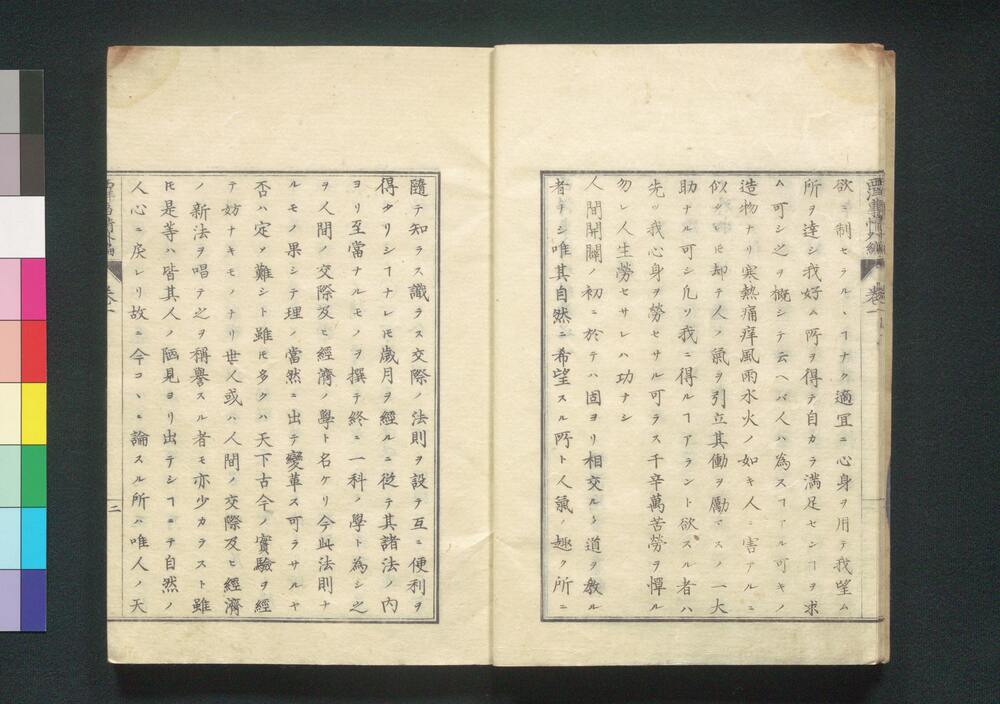 西洋事情外編 卷一
欲ニ制セラルヽヿナク適宜ニ心身ヲ用テ我望ム
所ヲ達シ我好ム所ヲ得テ自カラ満足センヿヲ求
ム可シ之ヲ概シテ云ヘバ人ハ為スヿアル可キノ
造物ナリ寒熱痛痒風雨水火ノ如キ人ニ害アルニ
似タレ𪜈却テ人ノ氣ヲ引立其働ヲ勵マスノ一大
助ナル可シ凡ソ我ニ得ルヿアラント欲スル者ハ
先ツ我心身ヲ勞セサル可ラス千辛萬苦勞ヲ憚ル
勿レ人生勞セサレハ功ナシ
人間開闢ノ初ニ於テハ固ヨリ相交ルノ道ヲ教ル
者ナシ唯其自然ニ希望スル所ト人氣ノ趣ク所ニ
隨テ知ラス識ラス交際ノ法則ヲ設ラ互ニ便利ヲ
得タリシヿナレ𪜈歳月ヲ經ルニ從テ其諸法ノ内
ヨリ至當ナルモノヲ撰テ終ニ一科ノ學ト為シ之
ヲ人間ノ交際及ヒ經濟ノ學ト名ケリ今此法則ナ
ルモノ果シテ理ノ當然ニ出テ變革ス可ラサルヤ
否ハ定メ難シト雖𪜈多クハ天下古今ノ實驗ヲ經
テ妨ナキモノナリ世人或ハ人間ノ交際及ヒ經濟
ノ新法ヲ唱テ之ヲ稱譽スル者モ亦少カラスト雖
𪜈是等ハ皆其人ノ陋見ヨリ出テシヿニテ自然ノ
人心ニ戻レリ故ニ今コヽニ論スル所ハ唯人ノ天
卷一
三